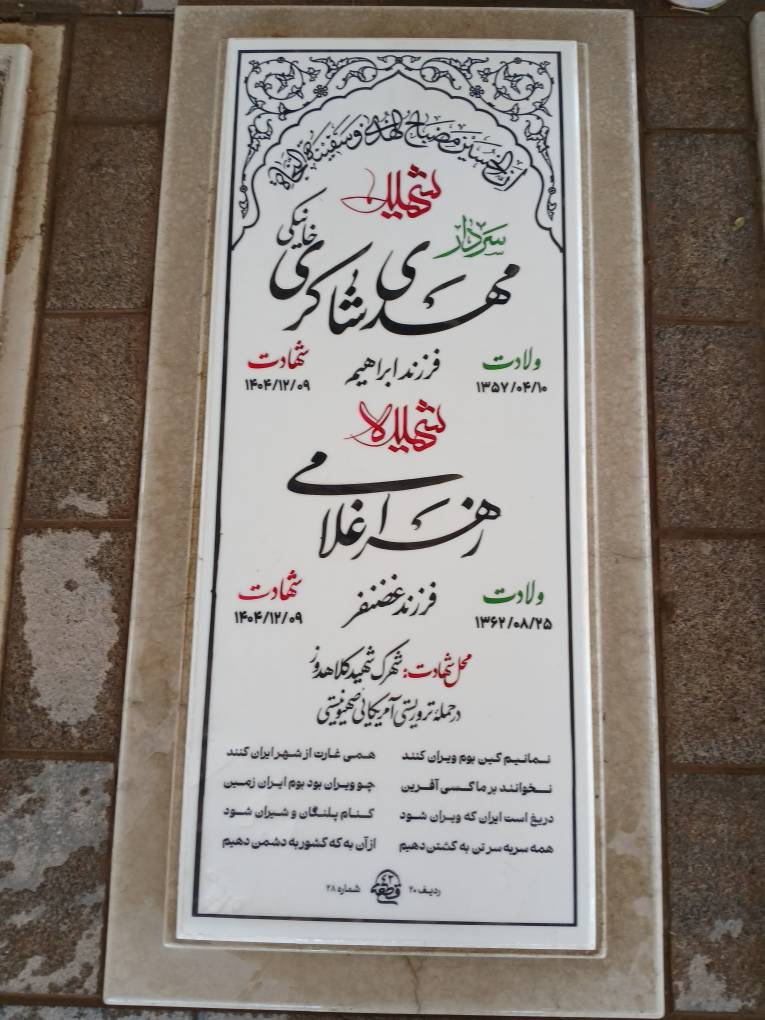 ان الحسین مصباح الهدی و سفینة النجاة
شهید
سردار
مهدی شاکری خانیکی
ولادت ۱۳۵۷/۰۴/۱۰
فرزند ابراهیم
شهادت ۱۴۰۴/۱۲/۰۹
شهیده
زهرا غلامی
ولادت ۱۳۶۲/۰۸/۲۵
فرزند غضنفر
شهادت ۱۴۰۴/۱۲/۰۹
محل شهادت: شهرک شهید کلاهدوز
در حملهٔ تروریستی آمریکایی صهیونیستی
نمانیم کین بوم ویران کنند همی غارت از شهر ایران کنند
نخوانند بر ما کسی آفرین چو ویران بود بوم ایران زمین
دریغ است ایران که ویران شود کنام پلنگان و شیران شود
همه سر به سر تن به کشتن دهیم از آن به که کشور به دشمن دهیم
ردیف ۲۰ قطعه ۴۲ شماره ۲۸